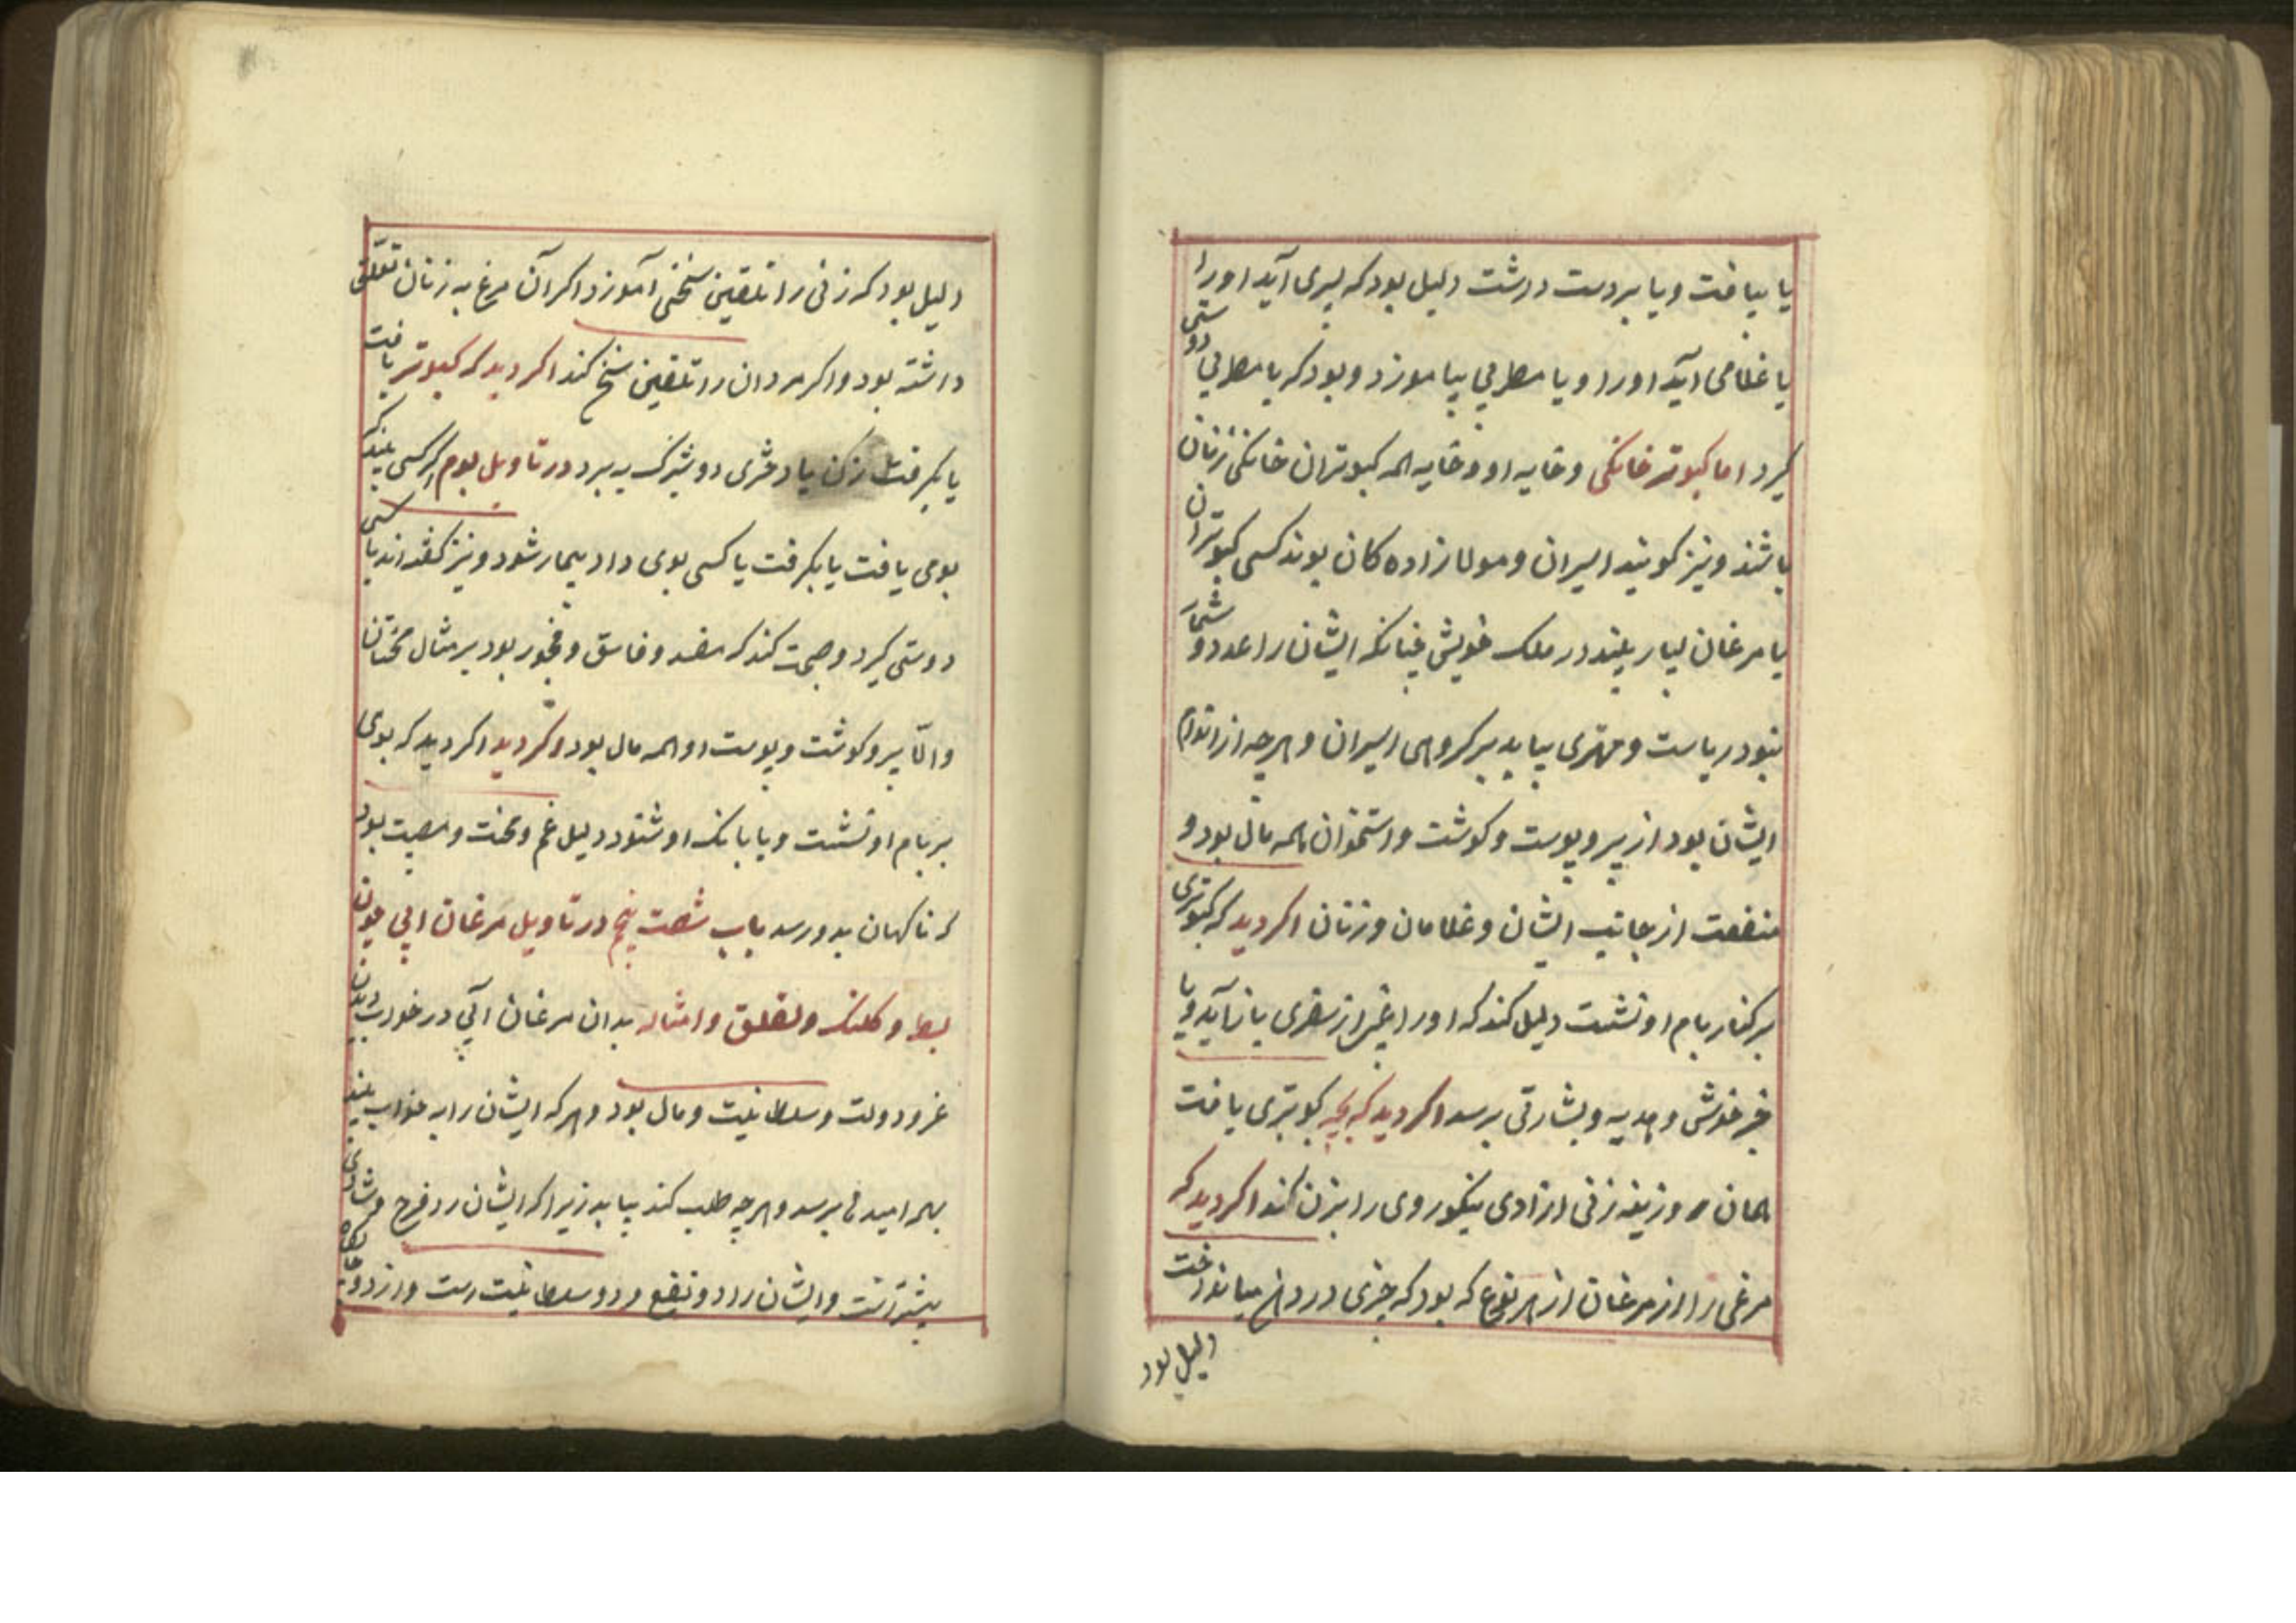 یا بیافت ویا بردست درشت دلیل بود که پسری آید اورا
یا غلامی آید اورا ویا مطربی بیاموزد وبود که با مطربی دوستی
کیرد اما کبوتر خانکی وخایه او وخایه همه کبوتران خانکی زنان
باشند ونیز کویند اسیران ومولازاده کان بوند کسی کبوتران
یا مرغان بسیار بیند در ملک خویش چنانکه ایشان را عدد و شمار
نبود ریاست ومهتری بیابد بر کروهی اسیران وهرچه از اندام
ایشان بود از پر وپوست وکوشت واستخوان همه مال بود و
منفعت از جانب ایشان وغلامان وزنان اکر دید که کبوتری
بر کنار بام او نشست دلیل کند که اورا از سفری باز آید ویا
خبر خوشی وهدیه وبشارتی برسد اکر دید که بچه کبوتری یافت
همان زنی ازادی نیکوروی را بزن کند اکر دید که
مرغی را از مرغان از هر نوع که بود که چیزی در دهن میانداخت
دلیل بود
دلیل بود که زنی را تلقین سخنی آموزد اکر آن مرغ به زنان تعلق
داشته بود واکر مردان را تلقین سخن کند اکر دید که کبوتر یافت
یا بکرفت زن یا دختری دوشیزک به برد در تاویل بوم اکر کسی بیند که
بومی یافت یا بکرفت یا کسی بوی داد بیمار شود ونیز کفته اند با کسی
دوستی کیرد وصحبت کند که مفسد وفاسق وفجور بود بر مثال
والا پر وکوشت وپوست او همه مال بود اکر دید که بومی
بر بام او نشست ویا بانک او شنود دلیل غم ومحنت ومصیبت بود
که ناکهان بدو رسد باب شصت پنج در تاویل مرغان ابی چون
بط وکلنک ولقلق وامثاله بدان مرغان آبی در خواب دیدن
عز ودولت وسلطانیت ومال بود وهر که ایشان را به خواب بیند
بهر امیدی برسد وهرچه طلب کند بیابد زیرا که ایشان را فرح وشادی
بیشتراست وایشان را دو نفع ودو سلطانیت است واز دو